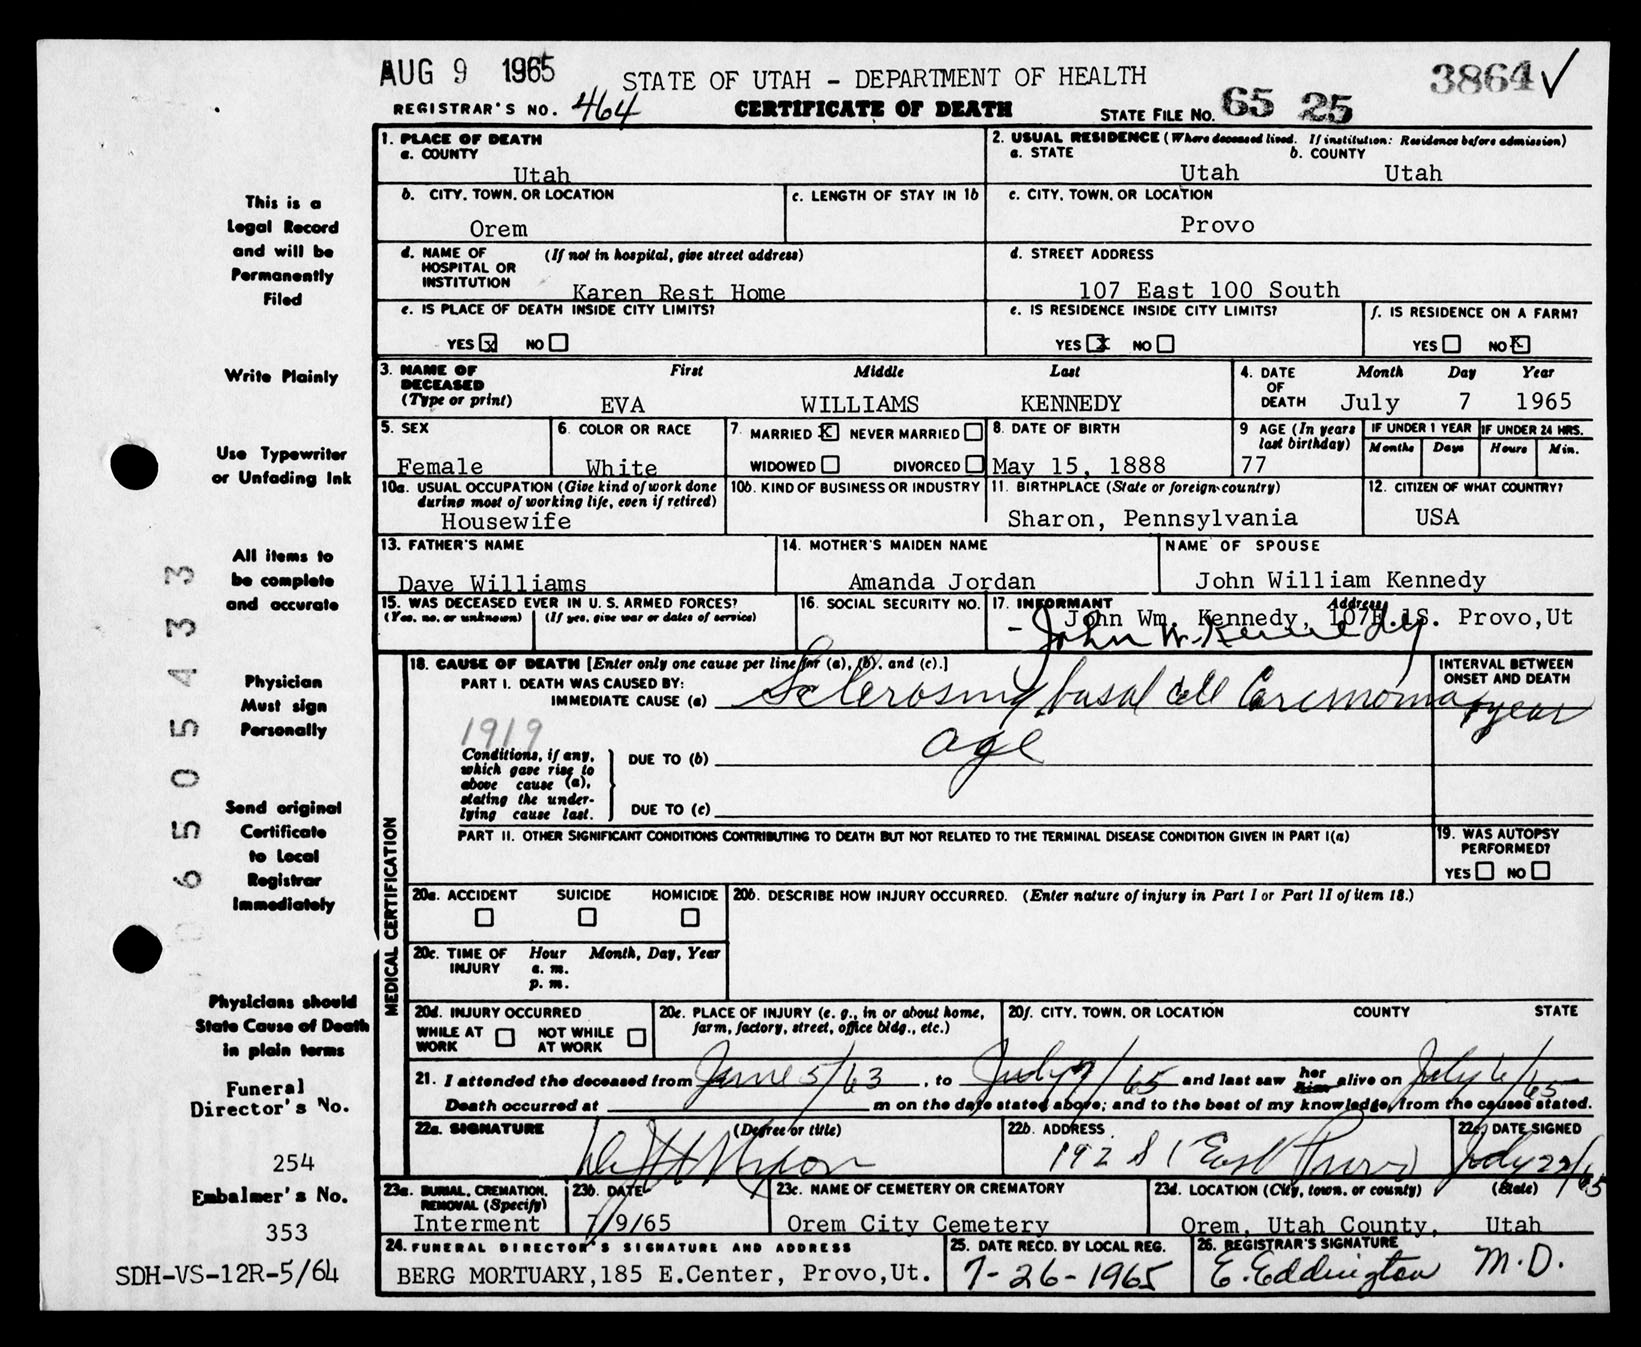 AUG 9 1965
STATE OF UTAH - DEPARTMENT OF HEALTH
3864 ✓
REGISTRAR'S NO. 464
CERTIFICATE OF DEATH
STATE FILE NO. 65 25
This is a
Legal Record
and will be
Permanently
Filed
Write Plainly
Use Typewriter
or Unfading Ink
All items to
be complete
and accurate
Physician
Must sign
Personally
Send original
Certificate
to Local
Registrar
Immediately
Physicians should
State Cause of Death
in plain terms
Funeral
Director's No.
254
Embalmer's No.
353
SDH-VS-12R-5/64
0650 5433
1. PLACE OF DEATH
a. COUNTY
Utah
2. USUAL RESIDENCE (Where deceased lived. If institution: Residence before admission)
a. STATE b. COUNTY
Utah Utah
b. CITY, TOWN, OR LOCATION
Orem
c. LENGTH OF STAY IN 1b
c. CITY, TOWN, OR LOCATION
Provo
d. NAME OF HOSPITAL OR INSTITUTION (If not in hospital, give street address)
Karen Rest Home
d. STREET ADDRESS
107 East 100 South
e. IS PLACE OF DEATH INSIDE CITY LIMITS?
YES x NO
e. IS RESIDENCE INSIDE CITY LIMITS?
YES X NO
f. IS RESIDENCE ON A FARM?
YES NO X
3. NAME OF DECEASED (Type or print)
First Middle Last
EVA WILLIAMS KENNEDY
4. DATE OF DEATH
Month Day Year
July 7 1965
5. SEX
Female
6. COLOR OR RACE
White
7. MARRIED X NEVER MARRIED
WIDOWED DIVORCED
8. DATE OF BIRTH
May 15, 1888
9 AGE (In years last birthday)
77
IF UNDER 1 YEAR
Months Days
IF UNDER 24 HRS.
Hours Min.
10a. USUAL OCCUPATION (Give kind of work done during most of working life, even if retired)
Housewife
10b. KIND OF BUSINESS OR INDUSTRY
11. BIRTHPLACE (State or foreign country)
Sharon, Pennsylvania
12. CITIZEN OF WHAT COUNTRY?
USA
13. FATHER'S NAME
Dave Williams
14. MOTHER'S MAIDEN NAME
Amanda Jordan
NAME OF SPOUSE
John William Kennedy
15. WAS DECEASED EVER IN U. S. ARMED FORCES?
(Yes, no, or unknown) (If yes, give war or dates of service)
16. SOCIAL SECURITY NO.
17. INFORMANT Address
John Wm. Kennedy, 107E.1S. Provo,Ut
John W. Kennedy
MEDICAL CERTIFICATION
18. CAUSE OF DEATH [Enter only one cause per line for (a), (b), and (c).]
PART I. DEATH WAS CAUSED BY:
IMMEDIATE CAUSE (a) Sclerosing basal cell Carcinoma
INTERVAL BETWEEN ONSET AND DEATH
year
1919
Conditions, if any,
which gave rise to
above cause (a),
stating the under-
lying cause last.
DUE TO (b) age
DUE TO (c)
PART II. OTHER SIGNIFICANT CONDITIONS CONTRIBUTING TO DEATH BUT NOT RELATED TO THE TERMINAL DISEASE CONDITION GIVEN IN PART I(a)
19. WAS AUTOPSY PERFORMED?
YES NO
20a. ACCIDENT SUICIDE HOMICIDE
20b. DESCRIBE HOW INJURY OCCURRED. (Enter nature of injury in Part I or Part II of item 18.)
20c. TIME OF INJURY Hour Month, Day, Year
a. m.
p. m.
20d. INJURY OCCURRED
WHILE AT WORK NOT WHILE AT WORK
20e. PLACE OF INJURY (e. g., in or about home, farm, factory, street, office bldg., etc.)
20f. CITY, TOWN, OR LOCATION COUNTY STATE
21. I attended the deceased from June 5/63, to July 7/65 and last saw her him alive on July 6/65
Death occurred at m on the date stated above; and to the best of my knowledge, from the causes stated.
22a. SIGNATURE (Degree or title)
22b. ADDRESS
192 S 1 East Provo
22c. DATE SIGNED
July 22/65
23a. BURIAL, CREMATION, REMOVAL (Specify)
Interment
23b. DATE
7/9/65
23c. NAME OF CEMETERY OR CREMATORY
Orem City Cemetery
23d. LOCATION (City, town, or county) (State)
Orem, Utah County, Utah
24. FUNERAL DIRECTOR'S SIGNATURE AND ADDRESS
BERG MORTUARY,185 E.Center, Provo,Ut.
25. DATE RECD. BY LOCAL REG.
7-26-1965
26. REGISTRAR'S SIGNATURE
E. Eddington M.D.